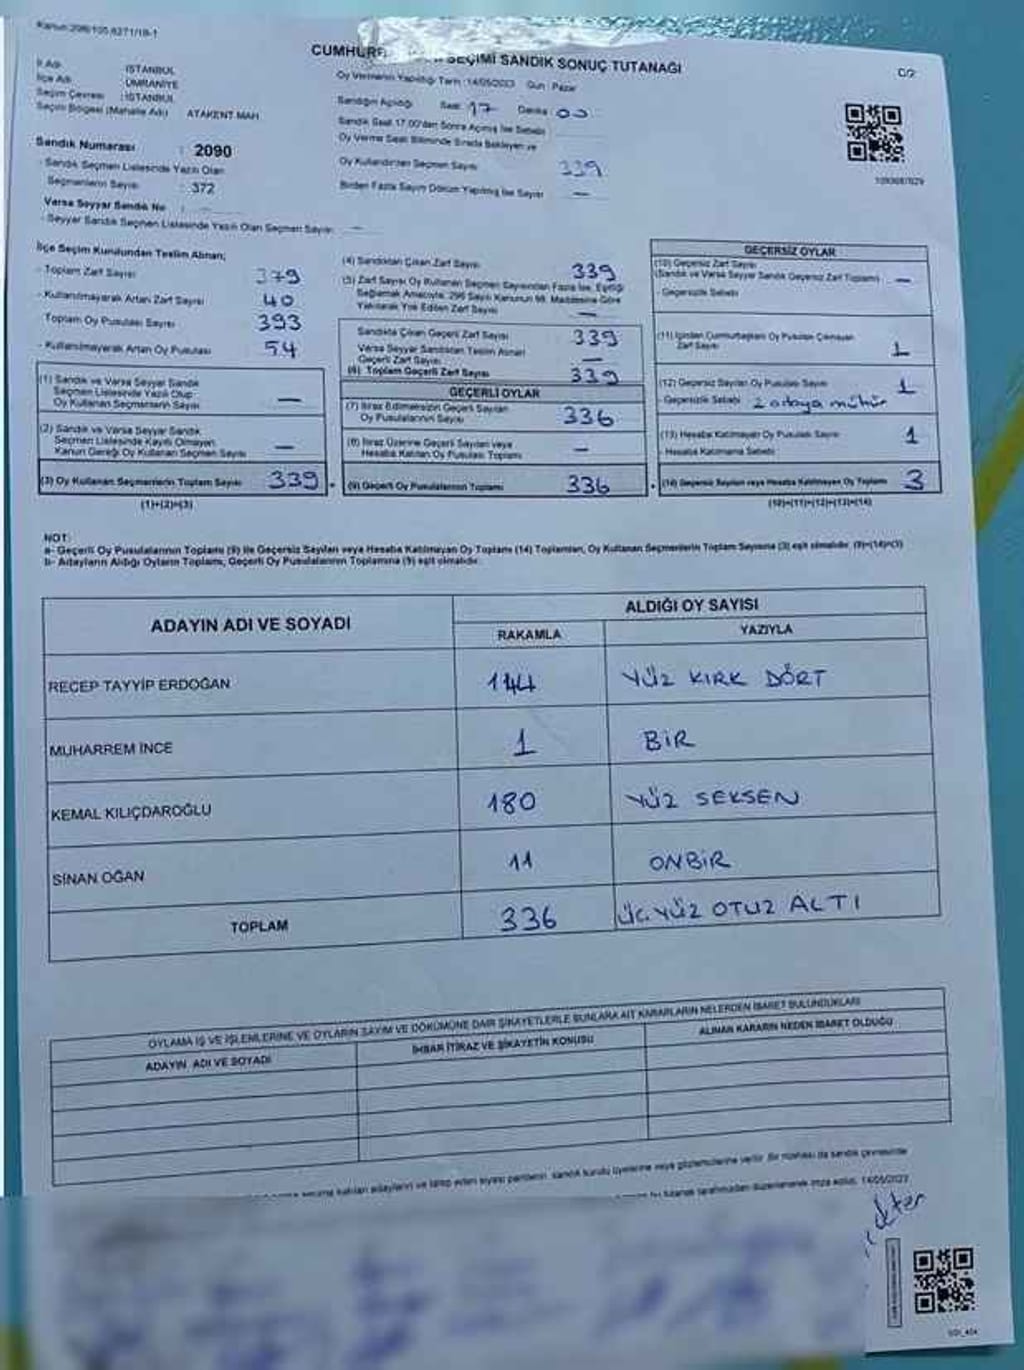 CUMHUR SEÇİMİ SANDIK SONUÇ TUTANAĞI
C/2
İl Adı İSTANBUL
İlçe Adı ÜMRANİYE
Seçim Çevresi : İSTANBUL
Seçim Bölgesi (Mahalle Adı) ATAKENT MAH
Oy Vermenin Yapıldığı Tarih :14/05/2023 Gün : Pazar
Sandığın Açıldığı Saat 17 Dakika 00
Sandık Saat 17.00'dan Sonra Açılmış İse Sebebi
Sandık Numarası : 2090
- Sandık Seçmen Listesinde Yazılı Olan
Seçmenlerin Sayısı : 372
Oy Verme Saati Bitiminde Sırada Bekleyen ve
Oy Kullandırılan Seçmen Sayısı 339
Birden Fazla Sayım Döküm Yapılmış İse Sayısı —
Varsa Seyyar Sandık No : —
- Seyyar Sandık Seçmen Listesinde Yazılı Olan Seçmen Sayısı —
İlçe Seçim Kurulundan Teslim Alınan;
- Toplam Zarf Sayısı 379
- Kullanılmayarak Artan Zarf Sayısı 40
Toplam Oy Pusulası Sayısı 393
- Kullanılmayarak Artan Oy Pusulası 54
(1) Sandık ve Varsa Seyyar Sandık
Seçmen Listesinde Yazılı Olup
Oy Kullanan Seçmenlerin Sayısı —
(2) Sandık ve Varsa Seyyar Sandık
Seçmen Listesinde Kayıtlı Olmayan
Kanun Gereği Oy Kullanan Seçmen Sayısı —
(3) Oy Kullanan Seçmenlerin Toplam Sayısı 339
(1)+(2)=(3)
(4) Sandıktan Çıkan Zarf Sayısı 339
(5) Zarf Sayısı Oy Kullanan Seçmen Sayısından Fazla İse, Eşitliği
Sağlamak Amacıyla, 298 Sayılı Kanunun 98. Maddesine Göre
Yakılarak Yok Edilen Zarf Sayısı —
Sandıkta Çıkan Geçerli Zarf Sayısı 339
Varsa Seyyar Sandıktan Teslim Alınan
Geçerli Zarf Sayısı —
(6) Toplam Geçerli Zarf Sayısı 339
GEÇERLİ OYLAR
(7) İtiraz Edilmeksizin Geçerli Sayılan
Oy Pusulalarının Sayısı 336
(8) İtiraz Üzerine Geçerli Sayılan veya
Hesaba Katılan Oy Pusulaları Toplamı —
(9) Geçerli Oy Pusulalarının Toplamı 336
GEÇERSİZ OYLAR
(10) Geçersiz Zarf Sayısı
(Sandık ve Varsa Seyyar Sandık Geçersiz Zarf Toplamı) —
- Geçersizlik Sebebi
(11) İçinden Cumhurbaşkanı Oy Pusulası Çıkmayan
Zarf Sayısı 1
(12) Geçersiz Sayılan Oy Pusulası Sayısı 1
- Geçersizlik Sebebi 2 adaya mühür
(13) Hesaba Katılmayan Oy Pusulası Sayısı 1
- Hesaba Katılmama Sebebi
(14) Geçersiz Sayılan veya Hesaba Katılmayan Oy Toplamı 3
(10)+(11)+(12)+(13)=(14)
NOT:
a- Geçerli Oy Pusulalarının Toplamı (9) ile Geçersiz Sayılan veya Hesaba Katılmayan Oy Toplamı (14) Toplamları, Oy Kullanan Seçmenlerin Toplam Sayısına (3) eşit olmalıdır. (9)+(14)=(3)
b- Adayların Aldığı Oyların Toplamı, Geçerli Oy Pusulalarının Toplamına (9) eşit olmalıdır.
ADAYIN ADI VE SOYADI ALDIĞI OY SAYISI
RAKAMLA YAZIYLA
RECEP TAYYİP ERDOĞAN 144 YÜZ KIRK DÖRT
MUHARREM İNCE 1 BİR
KEMAL KILIÇDAROĞLU 180 YÜZ SEKSEN
SİNAN OĞAN 11 ONBİR
TOPLAM 336 ÜÇ YÜZ OTUZ ALTI
OYLAMA İŞ VE İŞLEMLERİNE VE OYLARIN SAYIM VE DÖKÜMÜNE DAİR ŞİKAYETLERLE BUNLARA AİT KARARLARIN NELERDEN İBARET BULUNDUKLARI
ADAYIN ADI VE SOYADI İHBAR İTİRAZ VE ŞİKAYETİN KONUSU ALINAN KARARIN NEDEN İBARET OLDUĞU